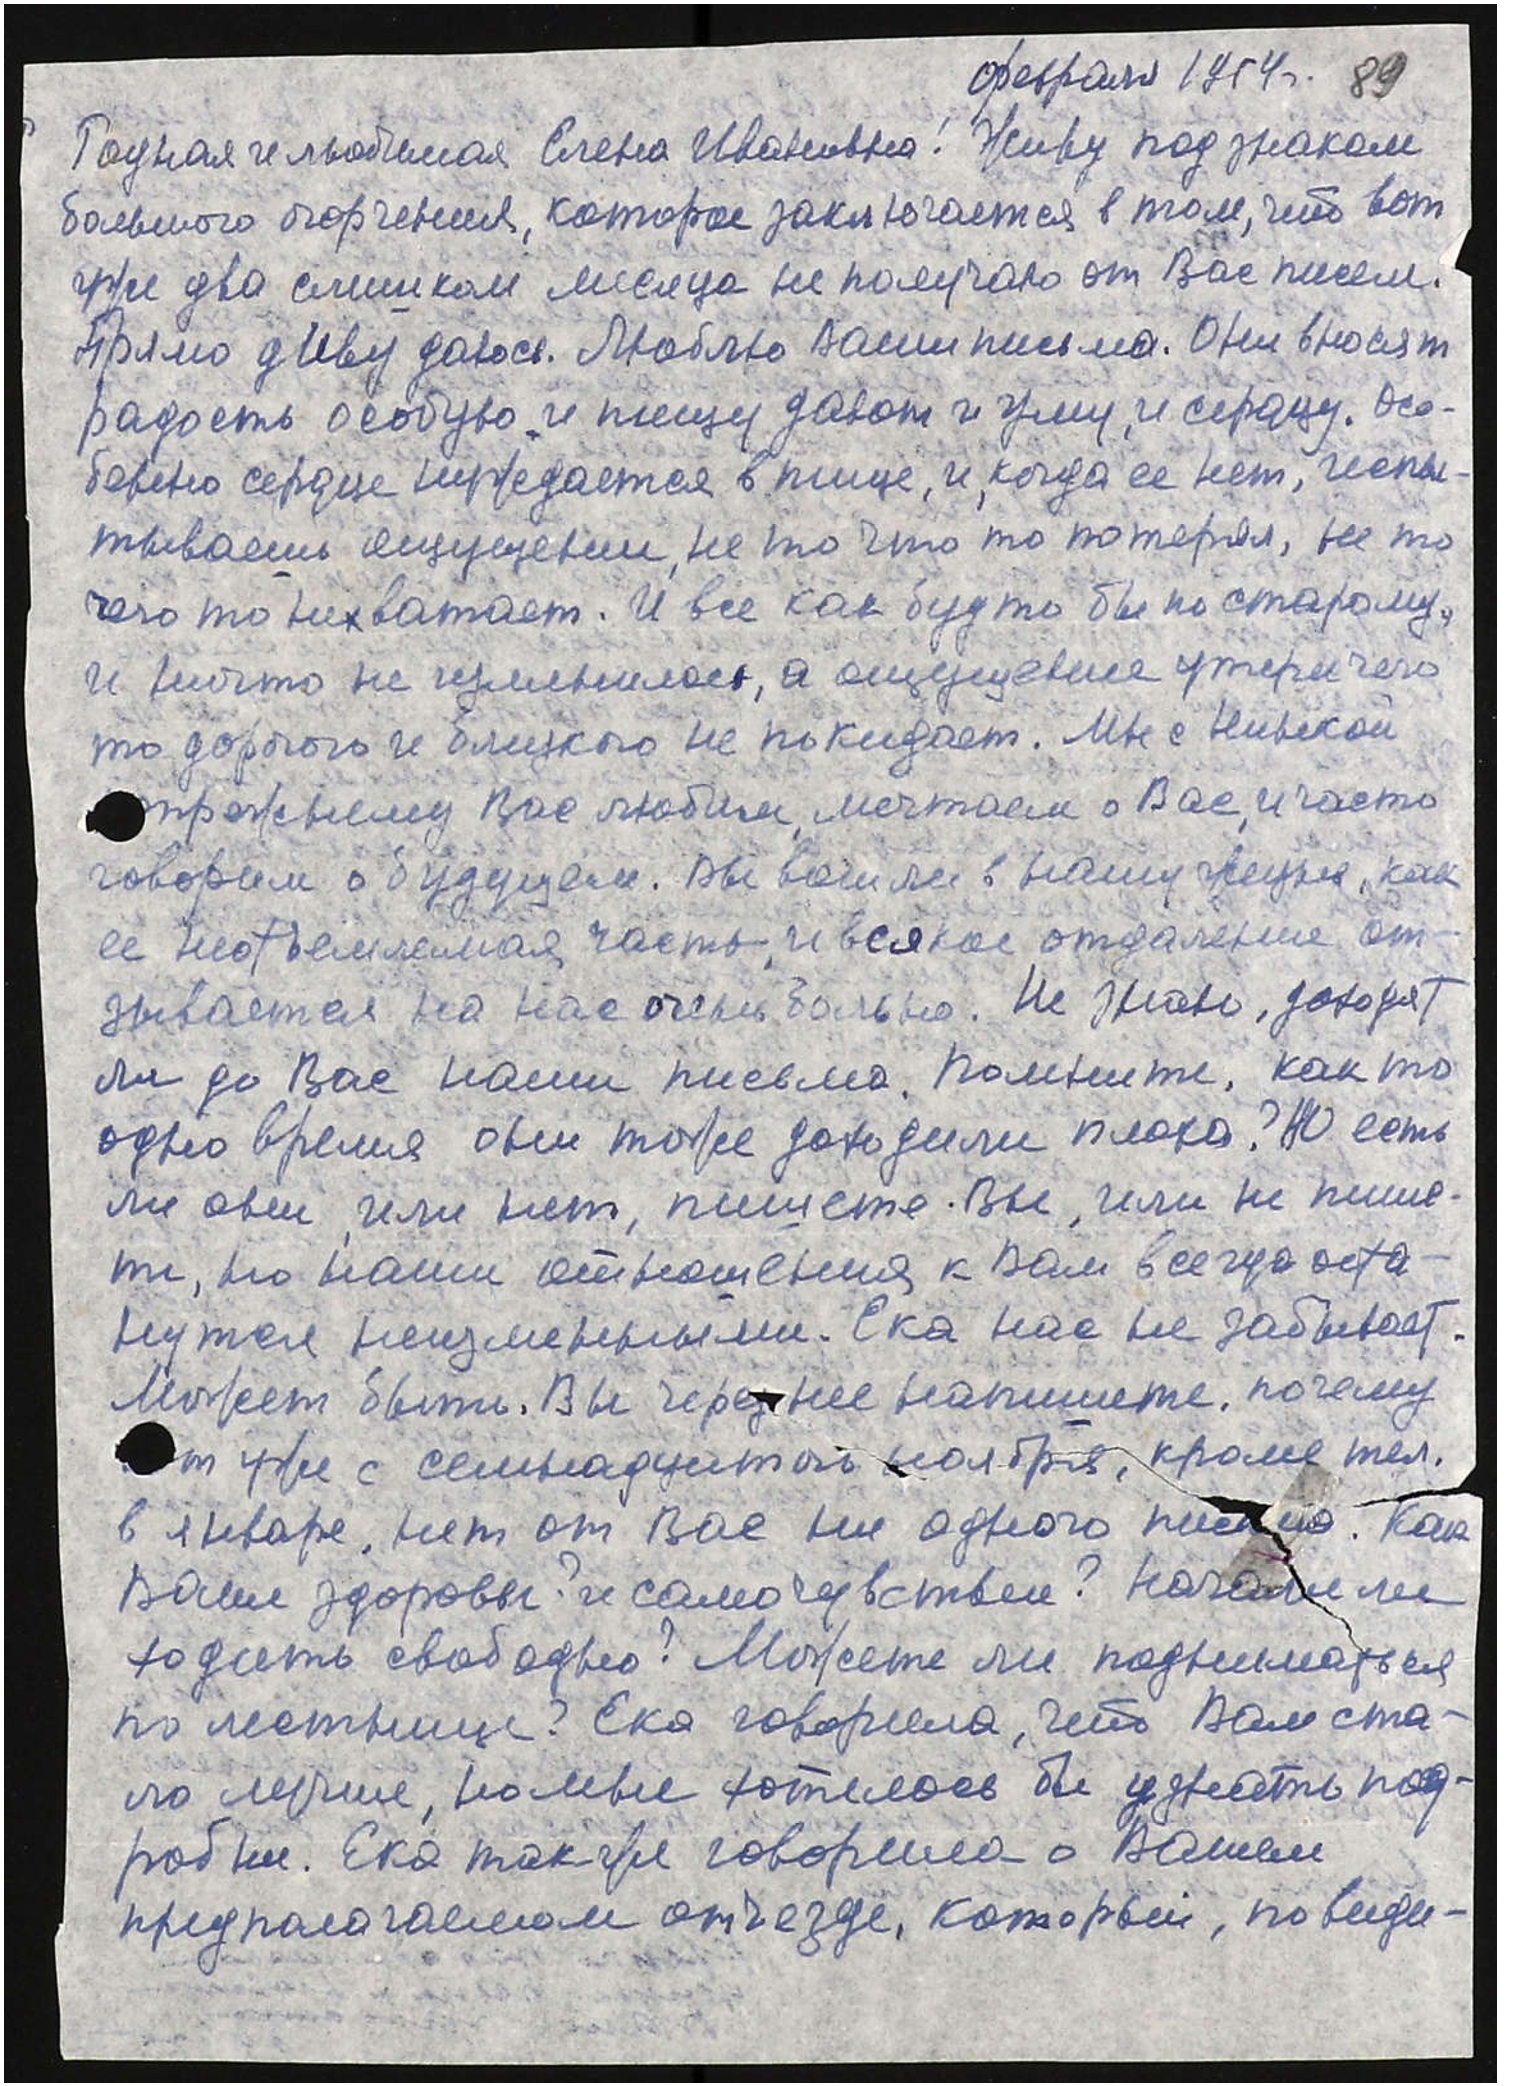 февраля 1954г. 89
Родная и любимая Елена Ивановна! Живу под знаком
большого огорчения, которое заключается в том, что вот
уже два слишком месяца не получаю от Вас писем.
Прямо диву даюсь. Люблю Ваши письма. Они вносят
радость особую и пищу дают и уму, и сердцу. Осо-
бенно сердце нуждается в пище, и, когда ее нет, испы-
тываешь ощущение, не то что то потерял, не то
чего то нехватает. И все как будто бы по старому,
и ничто не изменилось, а ощущение утери чего
то дорогого и близкого не покидает. Мы с Нинкой
прежнему Вас любим, мечтаем о Вас, и часто
говорим о будущем. Вы вошли в нашу жизнь, как
ее неотъемлемая часть, и всякое отдаление от-
зывается на нас очень больно. Не знаю, доходят
ли до Вас наши письма. Помните, как то
одно время они тоже доходили плохо? Но есть
ли они, или нет, пишете Вы, или не пише-
те, но наши отношения к Вам всегда оста-
нутся неизменными. Ека нас не забывает.
Может быть Вы через нее напишете, почему
вот уже с семнадцатого ноября, кроме тел.
в январе, нет от Вас ни одного письма. Как
Ваше здоровье? и самочувствие? Начали ли
ходить свободно? Можете ли подниматься
по лестнице? Ека говорила, что Вам ста-
ло лучше, но мне хотелось бы узнать под-
робнее. Ека также говорила о Вашем
предполагаемом отъезде, который, по види-